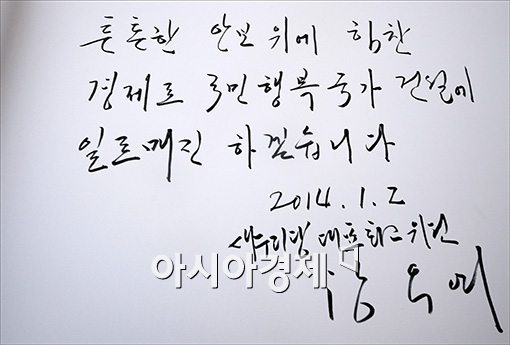 튼튼한 안보위에 힘찬
경제로 국민행복국가 건설에
일로매진 하겠습니다
2014.1.2
새누리당 대표최고위원
아시아경제
황우여